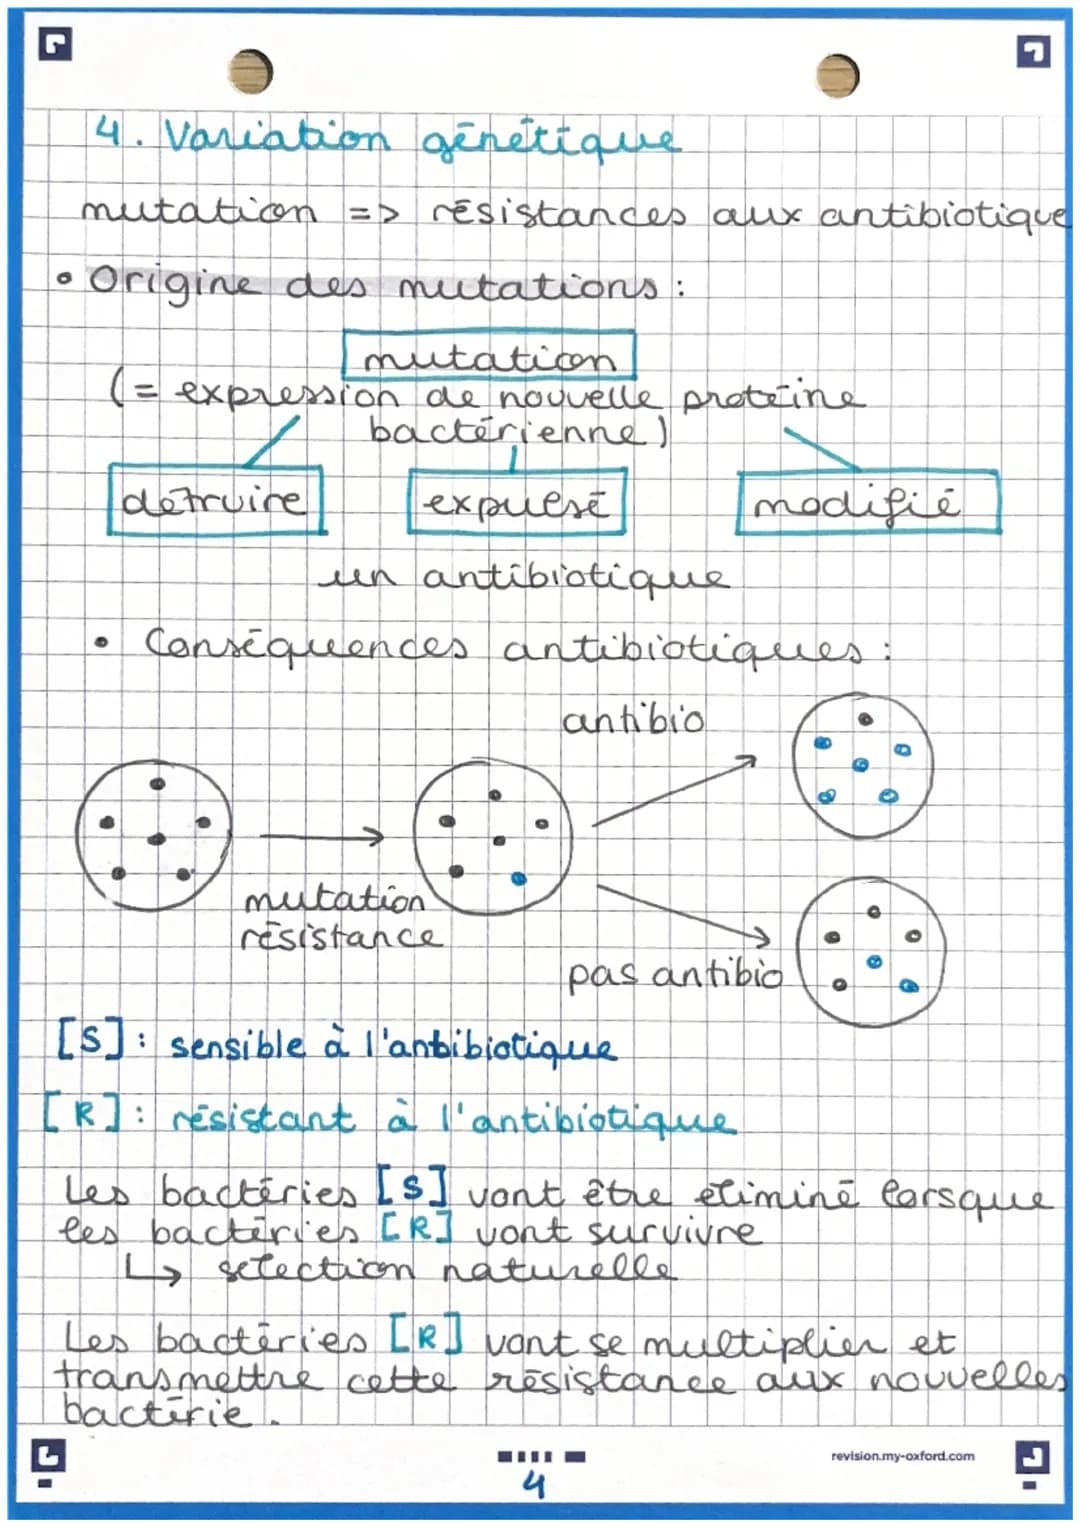 4. Variation génétique
mutation => résistances aux antibiotique
• Origine des mutations :
mutation
(= expression de nouvelle protéine
bactérienne)
détruire expulsé modifié
un antibiotique
• Conséquences antibiotiques :
antibio
mutation
résistance
pas antibio
[S] : sensible à l'antbibiotique
[R] : résistant à l'antibiotique
Les bactéries [S] vont être éliminé lorsque
les bactéries [R] vont survivre
↳ sélection naturelle
Les bactéries [R] vont se multiplier et
transmettre cette résistance aux nouvelles
bactérie.
revision.my-oxford.com
4